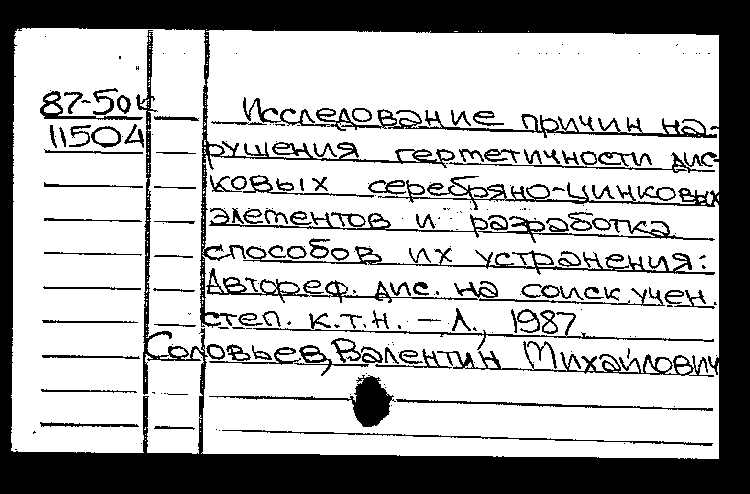 87-50к Исследование причин на-
11504 рушения герметичности дис-
ковых серебряно-цинковых
элементов и разработка
способов их устранения:
Автореф. дис. на соиск. учен.
степ. к.т.н. – Л., 1987.
Соловьев, Валентин Михайлович